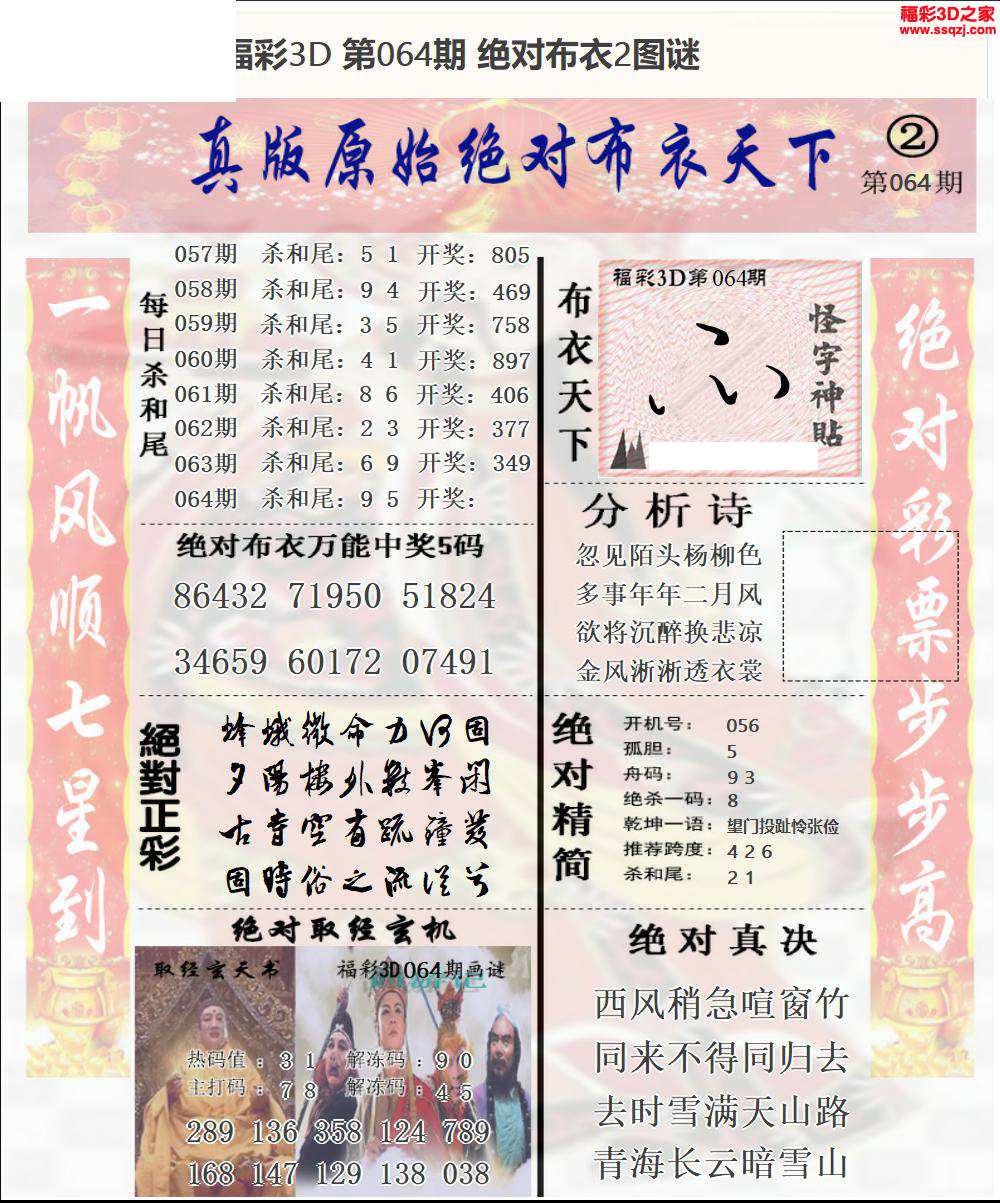 福彩3D之家
www.ssqzj.com
福彩3D 第064期 绝对布衣2图谜
真版原始绝对布衣天下
②
第064期
一帆风顺七星到
每日杀和尾
057期 杀和尾：5 1 开奖：805
058期 杀和尾：9 4 开奖：469
059期 杀和尾：3 5 开奖：758
060期 杀和尾：4 1 开奖：897
061期 杀和尾：8 6 开奖：406
062期 杀和尾：2 3 开奖：377
063期 杀和尾：6 9 开奖：349
064期 杀和尾：9 5 开奖：
绝对布衣万能中奖5码
86432 71950 51824
34659 60172 07491
絕對正彩
蜂蛾微命力何固
夕陽樓外數峯闲
古寺空有疏鐘发
固時俗之流从兮
绝对取经玄机
取经玄天书
福彩3D064期画谜
热码值：3 1 解冻码：9 0
主打码：7 8 解冻码：4 5
289 136 358 124 789
168 147 129 138 038
布衣天下
福彩3D第064期
怪字神贴
分析诗
忽见陌头杨柳色
多事年年二月风
欲将沉醉换悲凉
金风淅淅透衣裳
绝对精简
开机号：056
孤胆：5
舟码：9 3
绝杀一码：8
乾坤一语：望门投趾怜张俭
推荐跨度：4 2 6
杀和尾：2 1
绝对真决
西风稍急喧窗竹
同来不得同归去
去时雪满天山路
青海长云暗雪山
绝对彩票步步高